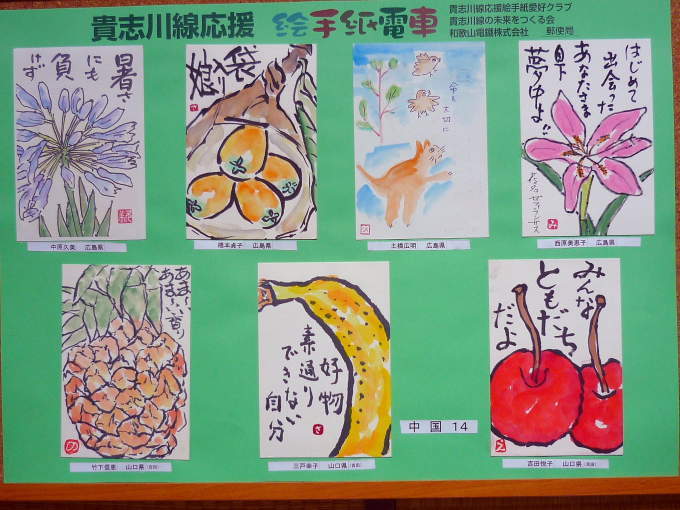 貴志川線応援 絵手紙電車
貴志川線応援絵手紙愛好クラブ
貴志川線の未来をつくる会
和歌山電鐵株式会社 郵便局
暑さ
にも
負
けず
袋
入り
娘
命を
大切に
はじめて
出会った
あなたさま
目下
夢中よ!!
中原久美 広島県
橋本貞子 広島県
土橋広明 広島県
西原美恵子 広島県
あま~い香り
あま~い
好物
素通り
できない
自分
みんな
ともだち
だよ
中国 14
竹下信恵 山口県
三戸幸子 山口県
吉田悦子 山口県